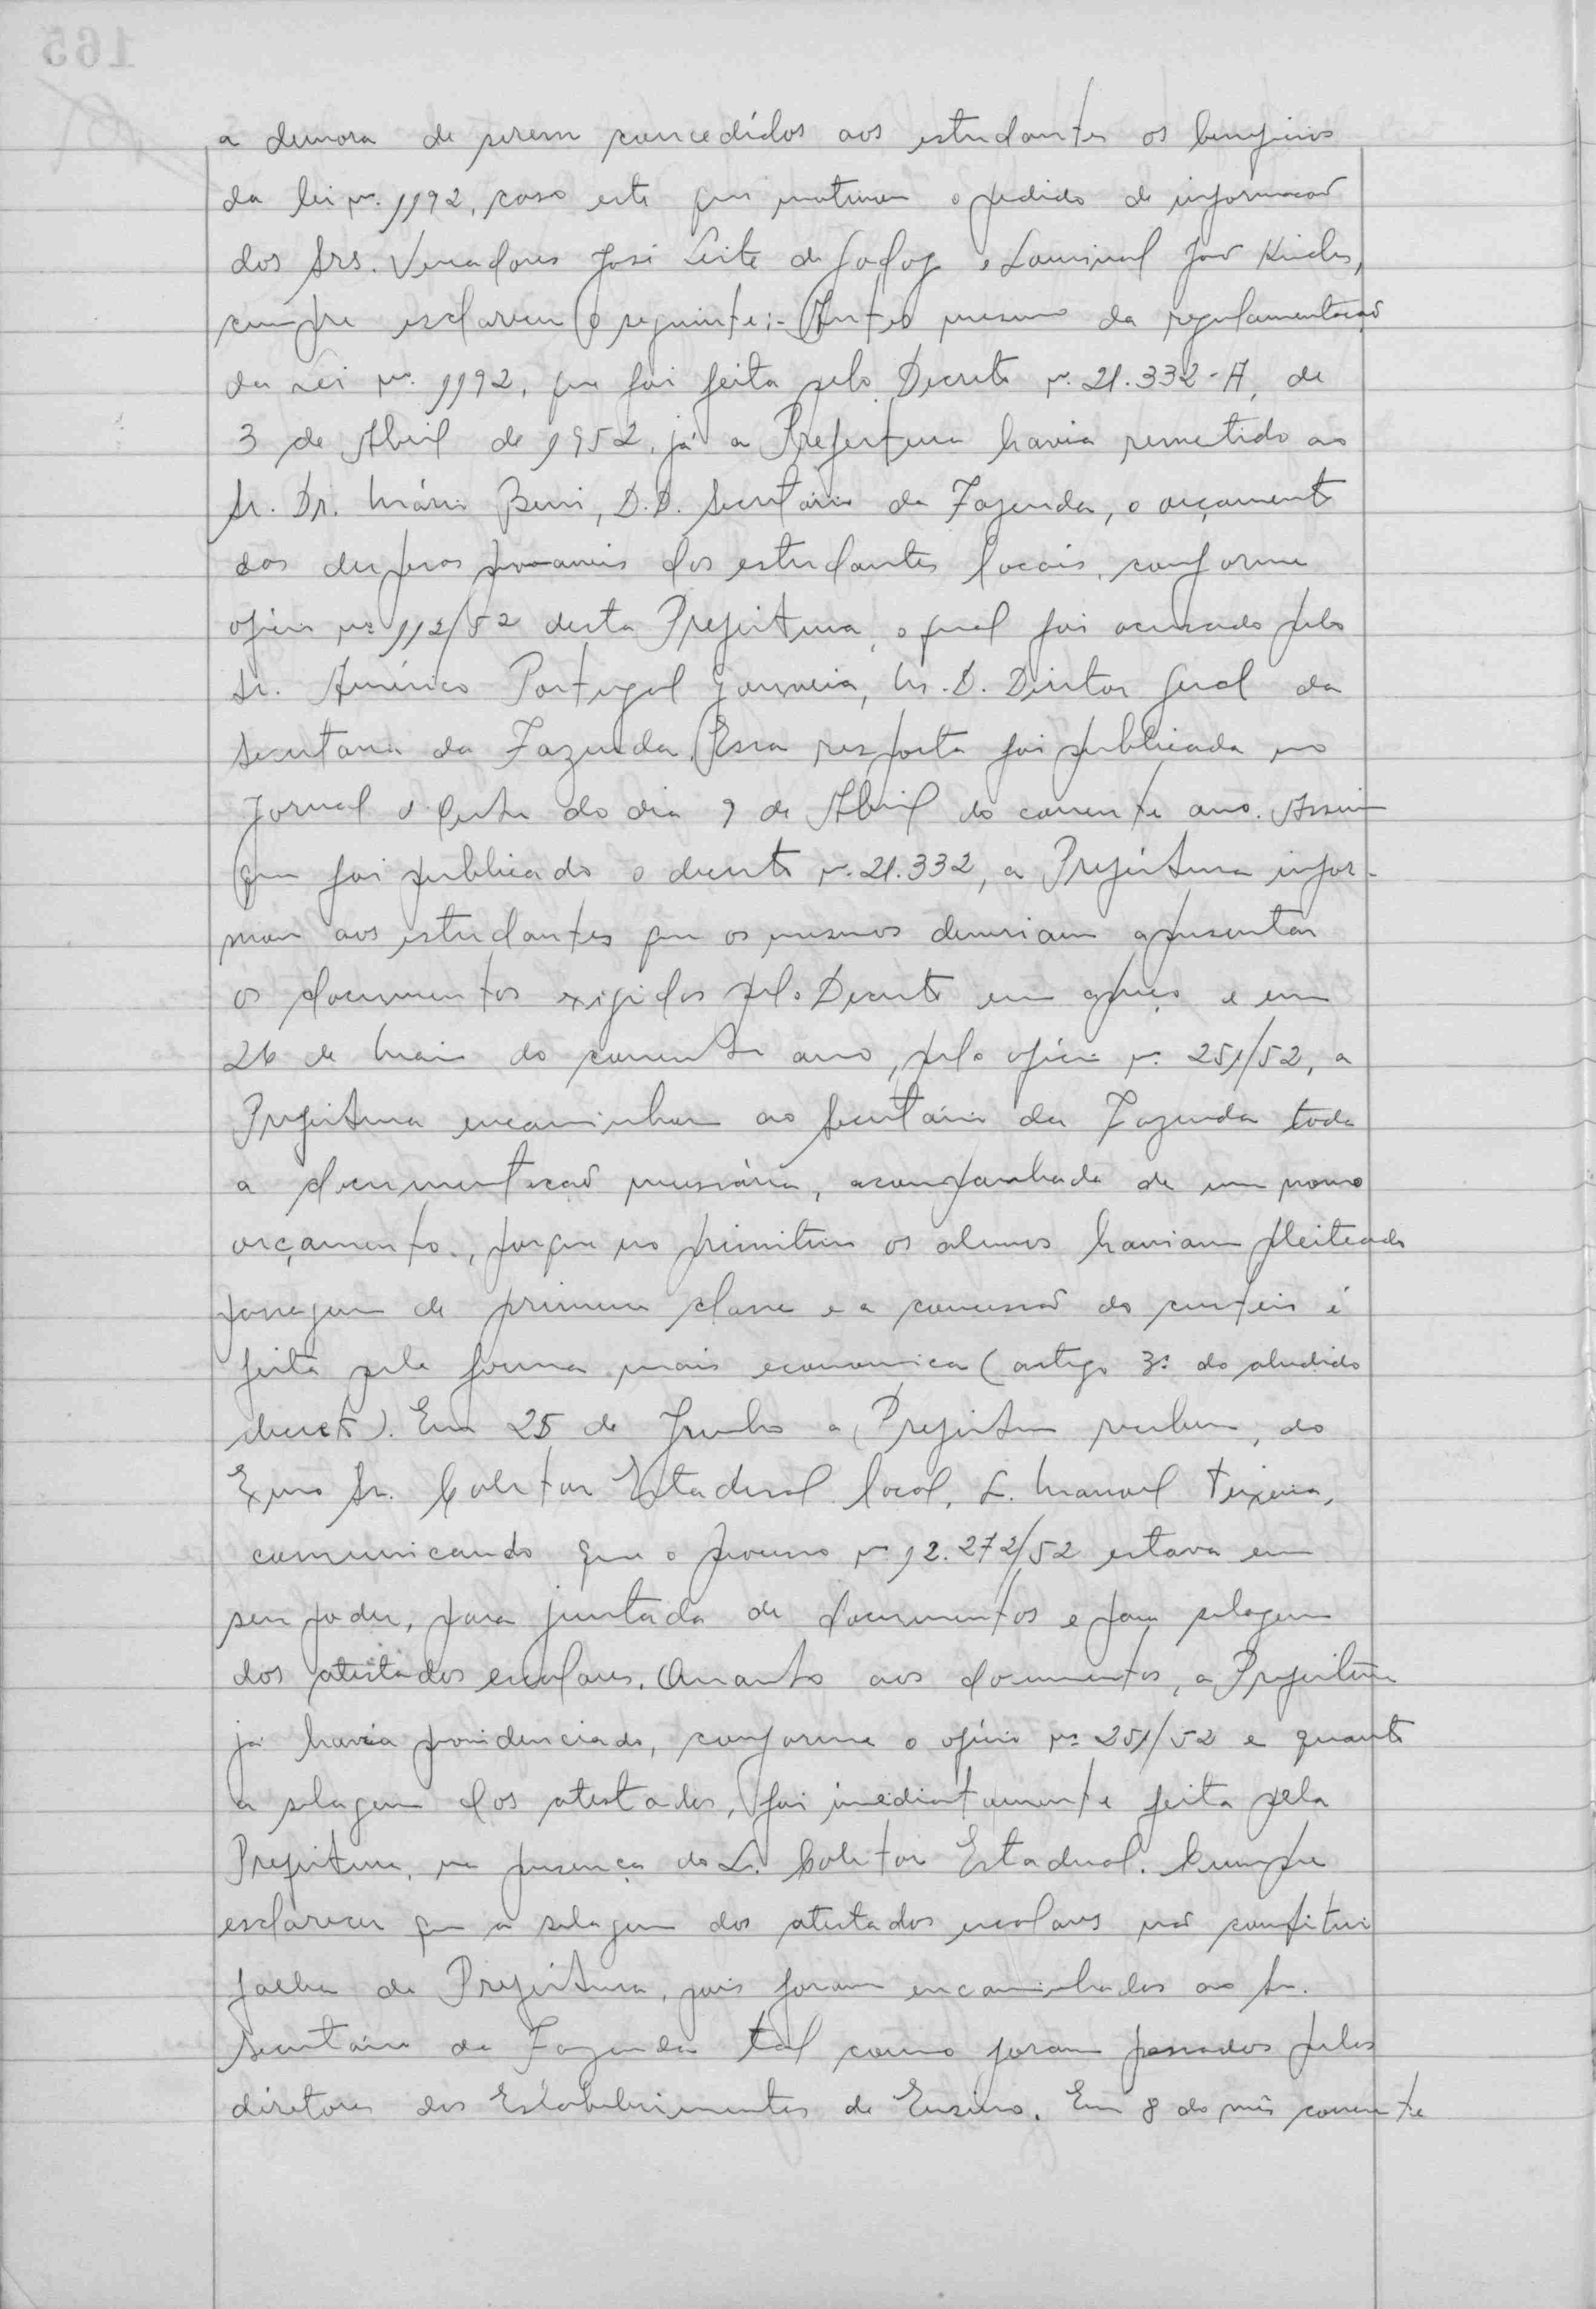 a demora de serem concedidos aos estudantes os beneficios
da lei nº. 1192, caso este que motivou o pedido de informação
dos Srs. Vereadores José Leite de Godoy e Lourival João
cumpre esclarecer o seguinte:- Antes mesmo da regulamentação
da Lei nº. 1192, que foi feita pelo Decreto nº. 21.332-A, de
3 de Abril de 1952, já a Prefeitura havia remetido ao
Sr. Dr. Mário Beni, D.D. Secretário da Fazenda, o orçamento
das despesas provaveis dos estudantes locais, conforme
oficio nº 112/52 desta Prefeitura, o qual foi acusado pelo
Sr. Américo Portugal Gouveia, M.D. Diretor Geral da
Secretaria da Fazenda. Essa resposta foi publicada no
Jornal d'Oeste do dia 9 de Abril do corrente ano. Assim
que foi publicado o decreto nº. 21.332, a Prefeitura infor-
mou aos estudantes que os mesmos deveriam apresentar
os documentos exigidos pelo Decreto em apreço e em
26 de Maio do corrente ano, pelo oficio nº. 251/52, a
Prefeitura encaminhou ao Secretário da Fazenda toda
a documentação necessária, acompanhada de um novo
orçamento., porque no primitivo os alunos haviam pleiteado
passagem de primeira classe e a concessão do custeio é
feita pela forma mais economica (artigo 3º do aludido
decreto). Em 25 de Junho a Prefeitura recebeu, do
Exmo Sr. Coletor Estadual local, S. Manoel Teixeira,
comunicando que o processo nº 12.272/52 estava em
seu poder, para juntada de documentos e para selagem
dos atestados escolares. Quanto aos documentos, a Prefeitura
já havia providenciado, conforme o oficio nº 251/52 e quanto
a selagem dos atestados, foi imediatamente feita pela
Prefeitura, na presença do S. Coletor Estadual. Cumpre
esclarecer que a selagem dos atestados escolares não constitui
falha da Prefeitura, pois foram encaminhados ao Sr.
Secretário da Fazenda tal como foram passados pelos
diretores dos Estabelecimentos de Ensino. Em 8 do mês corrente
165